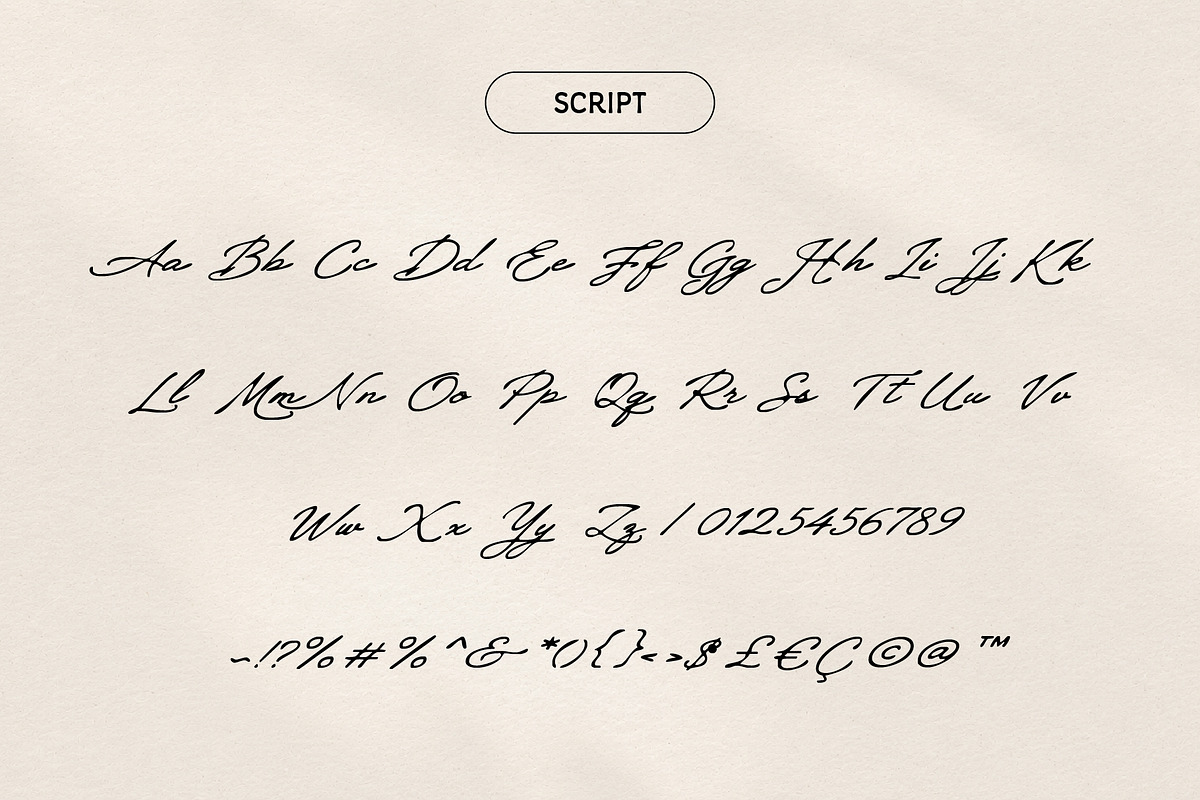 SCRIPT
Aa Bb Cc Dd Ee Ff Gg Hh Ii Jj Kk
Ll Mm Nn Oo Pp Qq Rr Ss Tt Uu Vv
Ww Xx Yy Zz / 0125456789
~!?%#%^&*(){}<>$£€Ç©@™